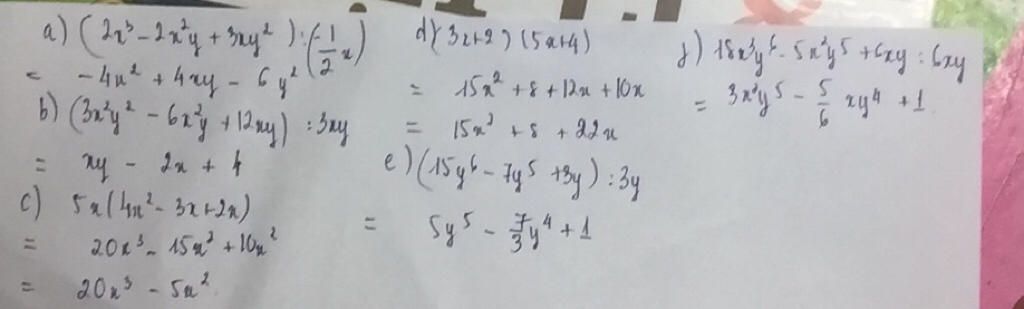 a) (2x³ - 2x²y + 3xy²) : (-1/2 x)
= -4x² + 4xy - 6y²
b) (3x²y² - 6x²y + 12xy) : 3xy
= xy - 2x + 4
c) 5x(4x² - 3x + 2x)
= 20x³ - 15x² + 10x²
= 20x³ - 5x²
d) (3x+2)(5x+4)
= 15x² + 8 + 12x + 10x
= 15x² + 8 + 22x
e) (15y⁶ - 7y⁵ + 3y) : 3y
= 5y⁵ - 7/3 y⁴ + 1
f) 18x³y⁶ - 5x²y⁵ + 6xy : 6xy
= 3x²y⁵ - 5/6 xy⁴ + 1